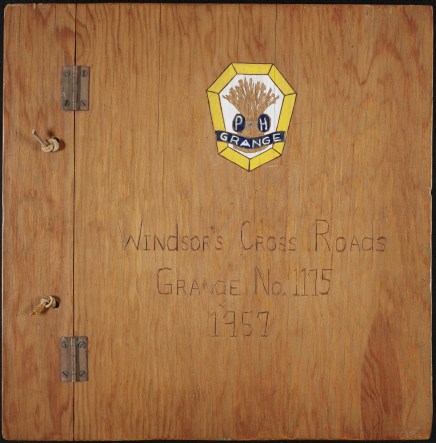 P H
GRANGE
WINDSOR'S CROSS ROADS
GRANGE NO. 1115
1957